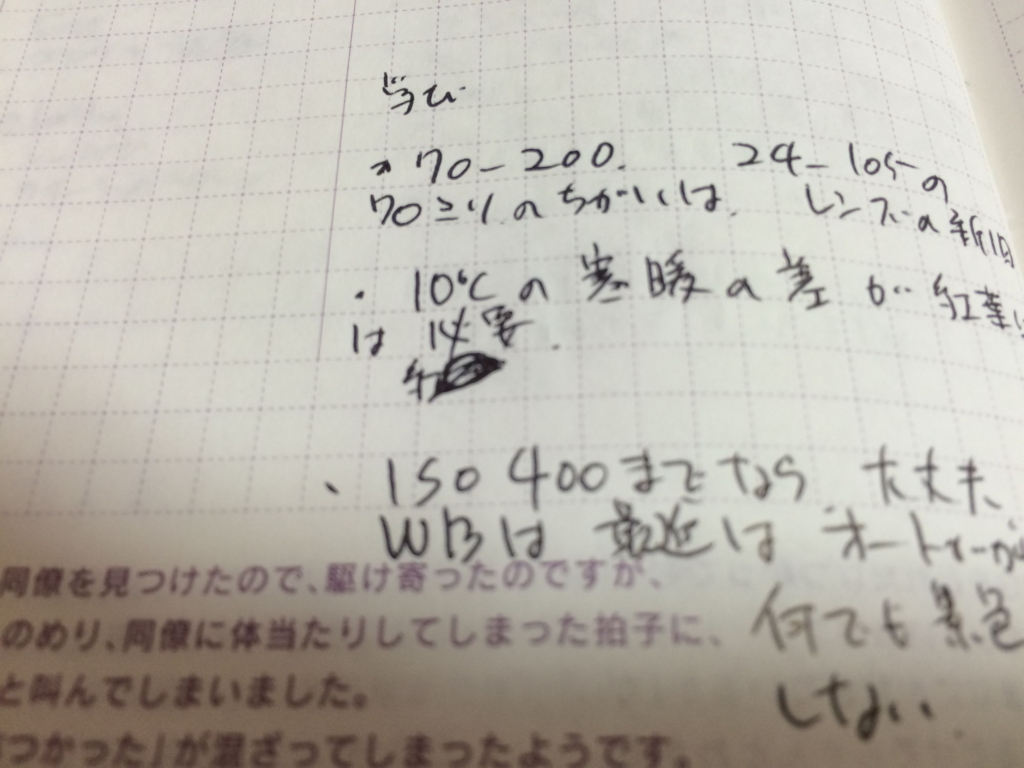 学び
・70-200. 24-105の
70ミリのちがいは. レンズの新旧
・10℃の寒暖の差が紅葉に
は必要.
、ISO 400までなら 大丈夫
WBは 最近は オート
同僚を見つけたので、駆け寄ったのですが、
のめり、同僚に体当たりしてしまった拍子に、
何でも景色
と叫んでしまいました。
しない
つかった」が混ざってしまったようです。